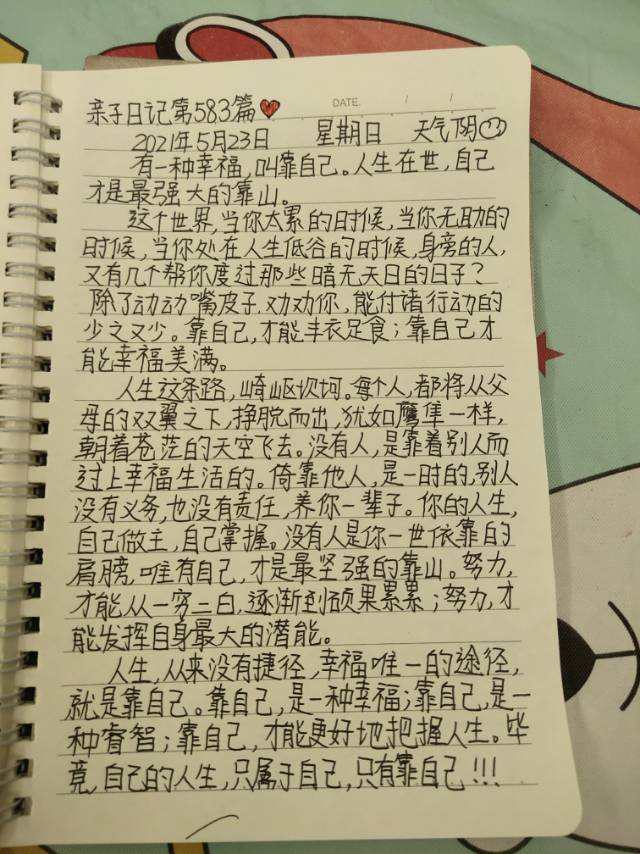 亲子日记第583篇
DATE. / /
2021年5月23日 星期日 天气阴
有一种幸福,叫靠自己。人生在世,自己
才是最强大的靠山。
这个世界,当你太累的时候,当你无助的
时候,当你处在人生低谷的时候,身旁的人,
又有几个帮你度过那些暗无天日的日子?
除了动动嘴皮子,劝劝你,能付诸行动的
少之又少。靠自己,才能丰衣足食;靠自己才
能幸福美满。
人生这条路,崎岖坎坷。每个人,都将从父
母的双翼之下,挣脱而出,犹如鹰隼一样,
朝着苍茫的天空飞去。没有人,是靠着别人而
过上幸福生活的。倚靠他人,是一时的,别人
没有义务,也没有责任,养你一辈子。你的人生,
自己做主,自己掌握。没有人是你一世依靠的
肩膀,唯有自己,才是最坚强的靠山。努力,
才能从一穷二白,逐渐到硕果累累;努力,才
能发挥自身最大的潜能。
人生,从来没有捷径,幸福唯一的途径,
就是靠自己。靠自己,是一种幸福;靠自己,是一
种睿智;靠自己,才能更好地把握人生。毕
竟,自己的人生,只属于自己,只有靠自己!!!